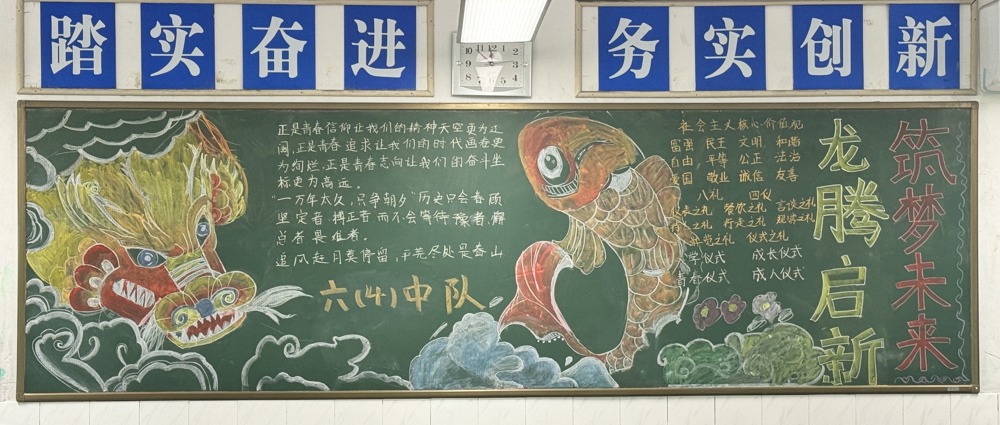 踏实奋进
务实创新
10 11 12 1 2
9 3
8 7 6 5 4
正是青春信仰让我们的精神天空更为辽
阔,正是青春追求让我们的时代画卷更
为绚烂,正是青春志向让我们的奋斗坐
标更为高远。
"一万年太久,只争朝夕"历史只会眷顾
坚定者、搏正者 而不会等待 者、懈
怠者 畏难者。
追风赶月莫停留,平芜尽处是春山
六(4)中队
社会主义核心价值观
富强 民主 文明 和谐
自由 平等 公正 法治
爱国 敬业 诚信 友善
八礼 四仪
仪表之礼 餐饮之礼 言谈之礼
待 之礼 行走之礼 观赏之礼
游览之礼 仪式之礼
学仪式 成长仪式
青春仪式 成人仪式
龙腾启新
筑梦未来